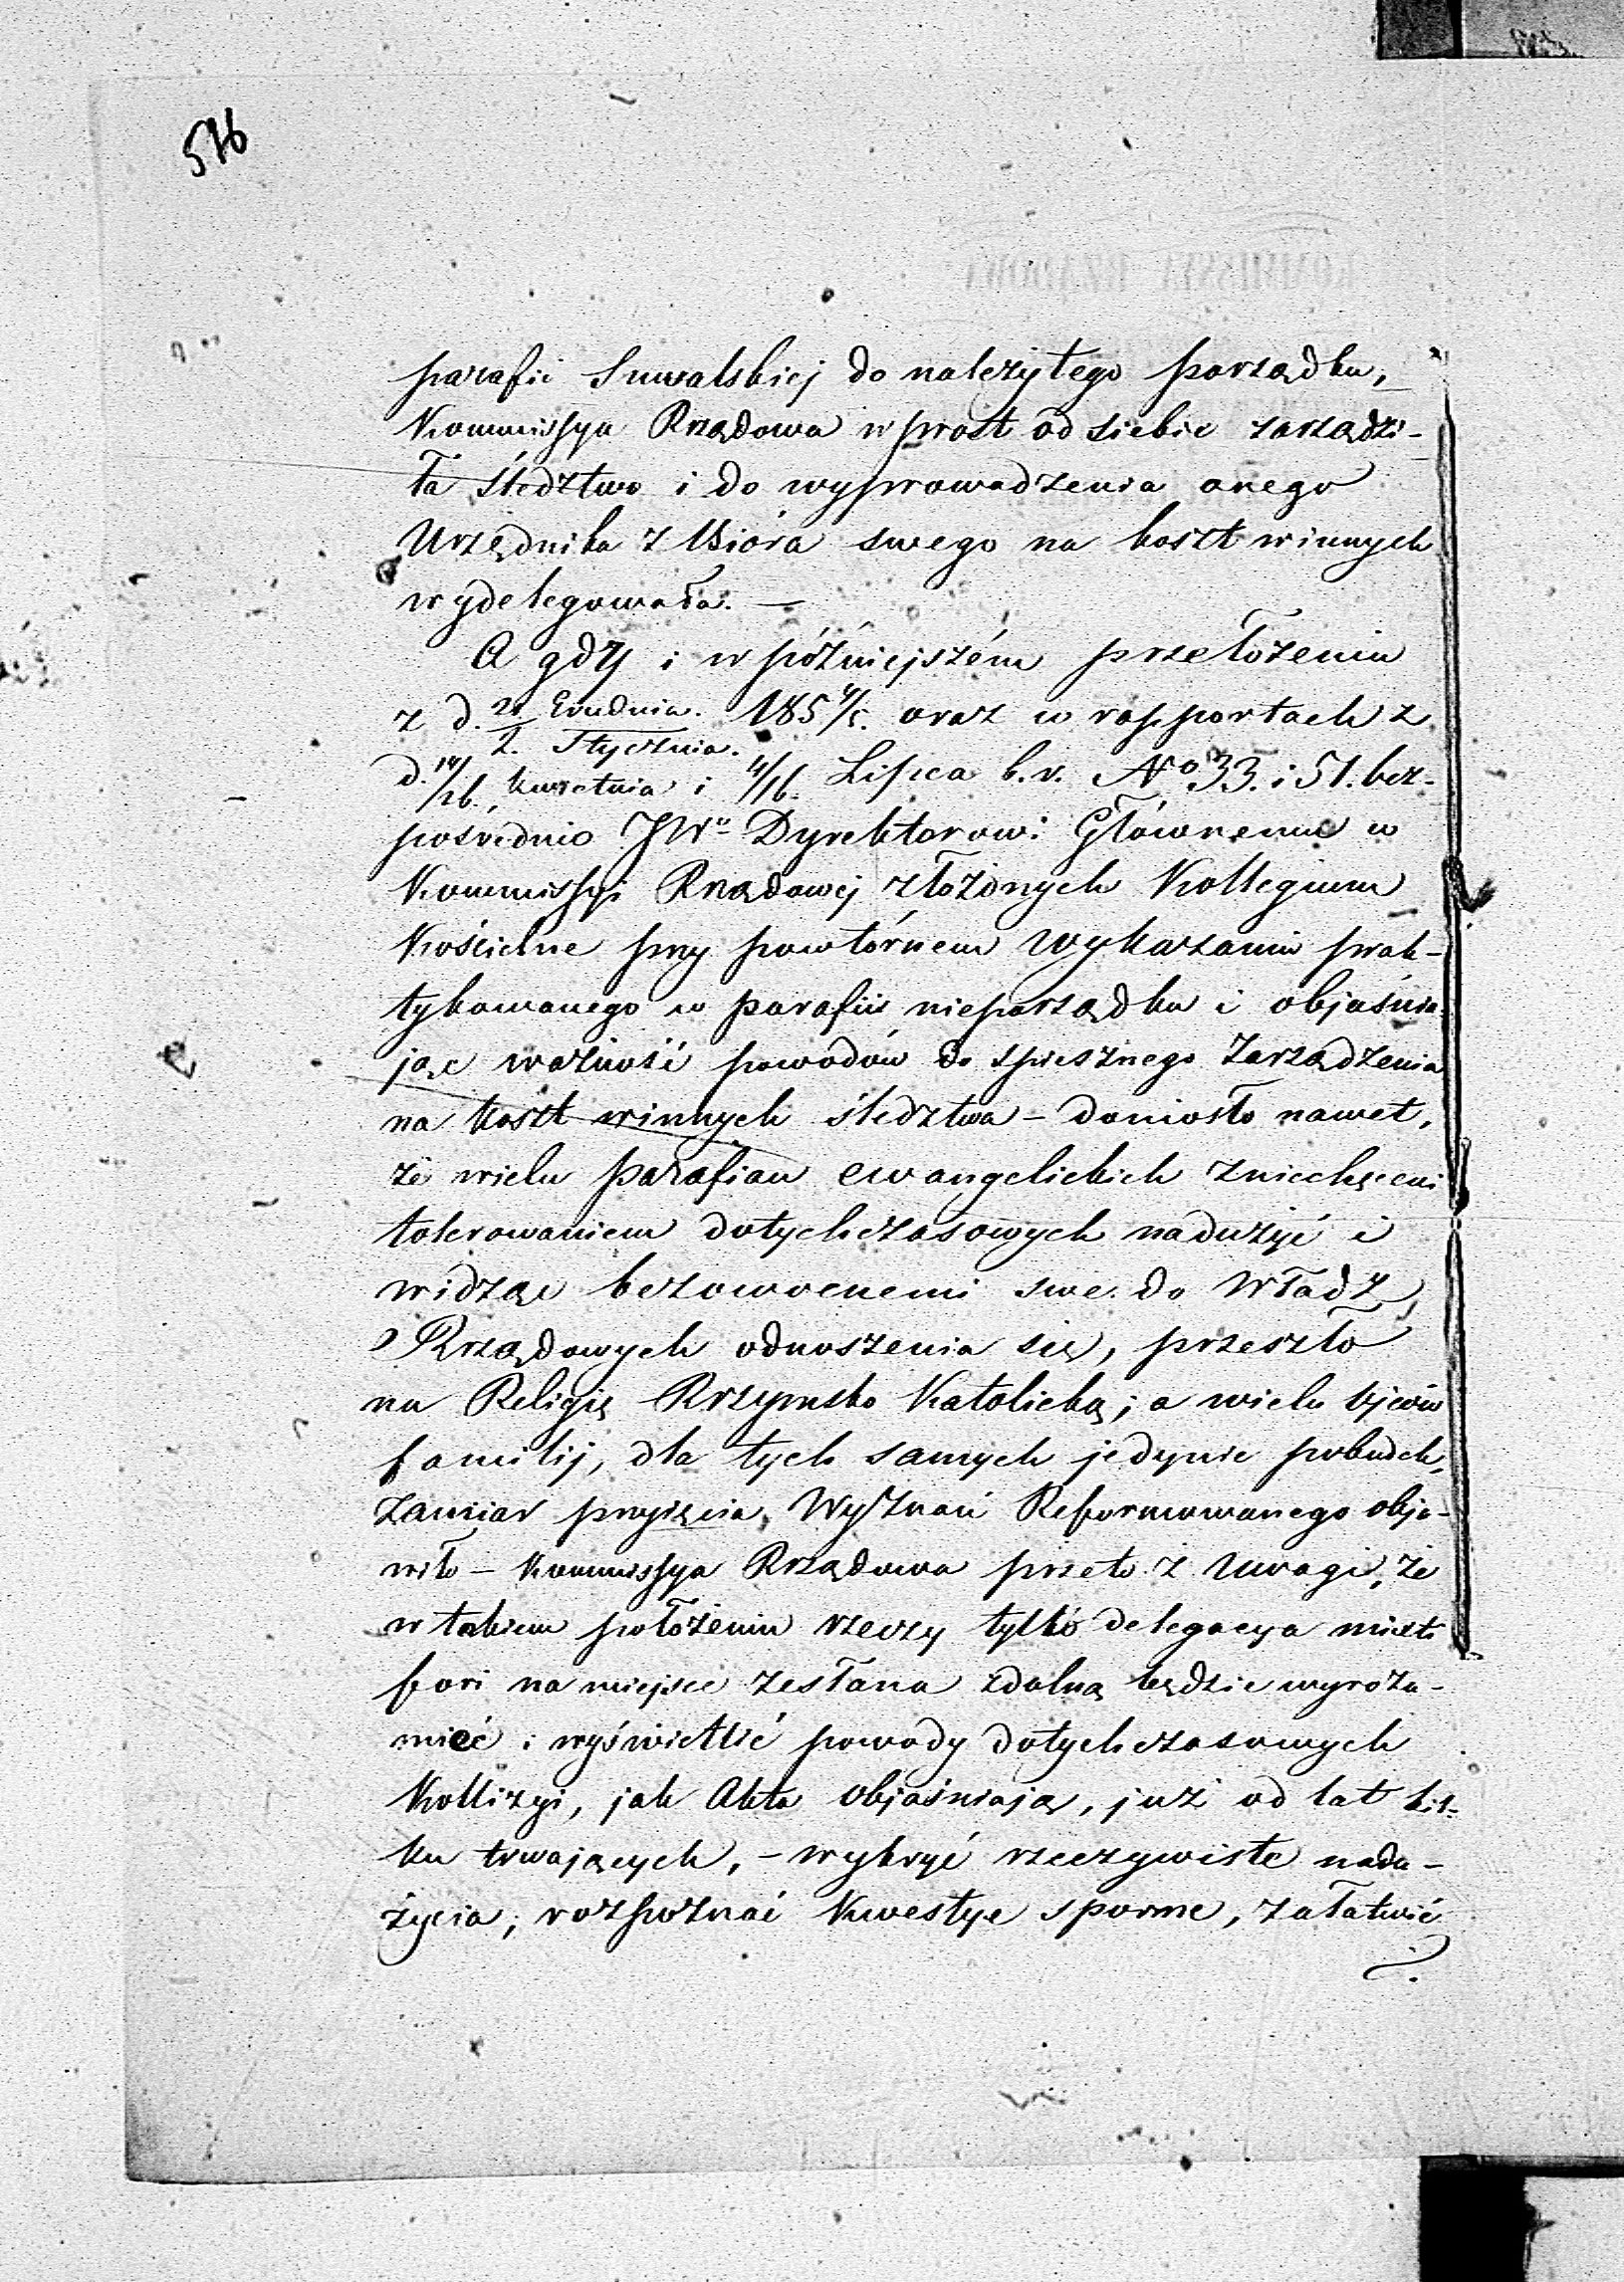 576
parafii Suwalskiej do należytego porządku,
Kommissya Rządowa wprost od siebie zarządzi-
ła śledztwo i do wyprowadzenia onego
Urzędnika z Bióra swego na koszt winnych
wydelegowała. —
A gdy i w późniejszém przełożeniu
z d. 21 Grudnia / 2. Stycznia. 185 4/5. oraz w rapportach z
d. 14/26. Kwietnia i 4/16. Lipca b. r. No 33. i 51. bez-
pośrednio JW. Dyrektorowi Głównemu w
Kommissyi Rządowej złożonych Kollegium
Kościelne przy powtórnem wykazaniu prak-
tykowanego w parafii nieporządku i objaśnia-
jąc ważność powodów do spiesznego zarządzenia
na koszt winnych śledztwa – doniosło nawet,
że wielu parafian ewangelickich zniechęceni
tolerowaniem dotychczasowych nadużyć i
widząc bezowocnemi swe do Władz
Rządowych odnoszenia się, przeszło
na Religię Rzymsko Katolicką; a wielu ojców
familij, dla tych samych jedynie pobudek,
zamiar przyjęcia Wyznań Reformowanego obja-
wiło – Kommissya Rządowa przeto z uwagi, że
w takiem położeniu rzeczy tylko delegacya mixti
fori na miejsce zesłana zdolną będzie wyrozu-
mieć i wyświetlić powody dotychczasowych
Kollizyi, jak Akta objaśniają, już od lat kil-
ku trwających, – wykryć rzeczywiste nadu-
życia, rozpoznać Kwestye sporne, załatwić